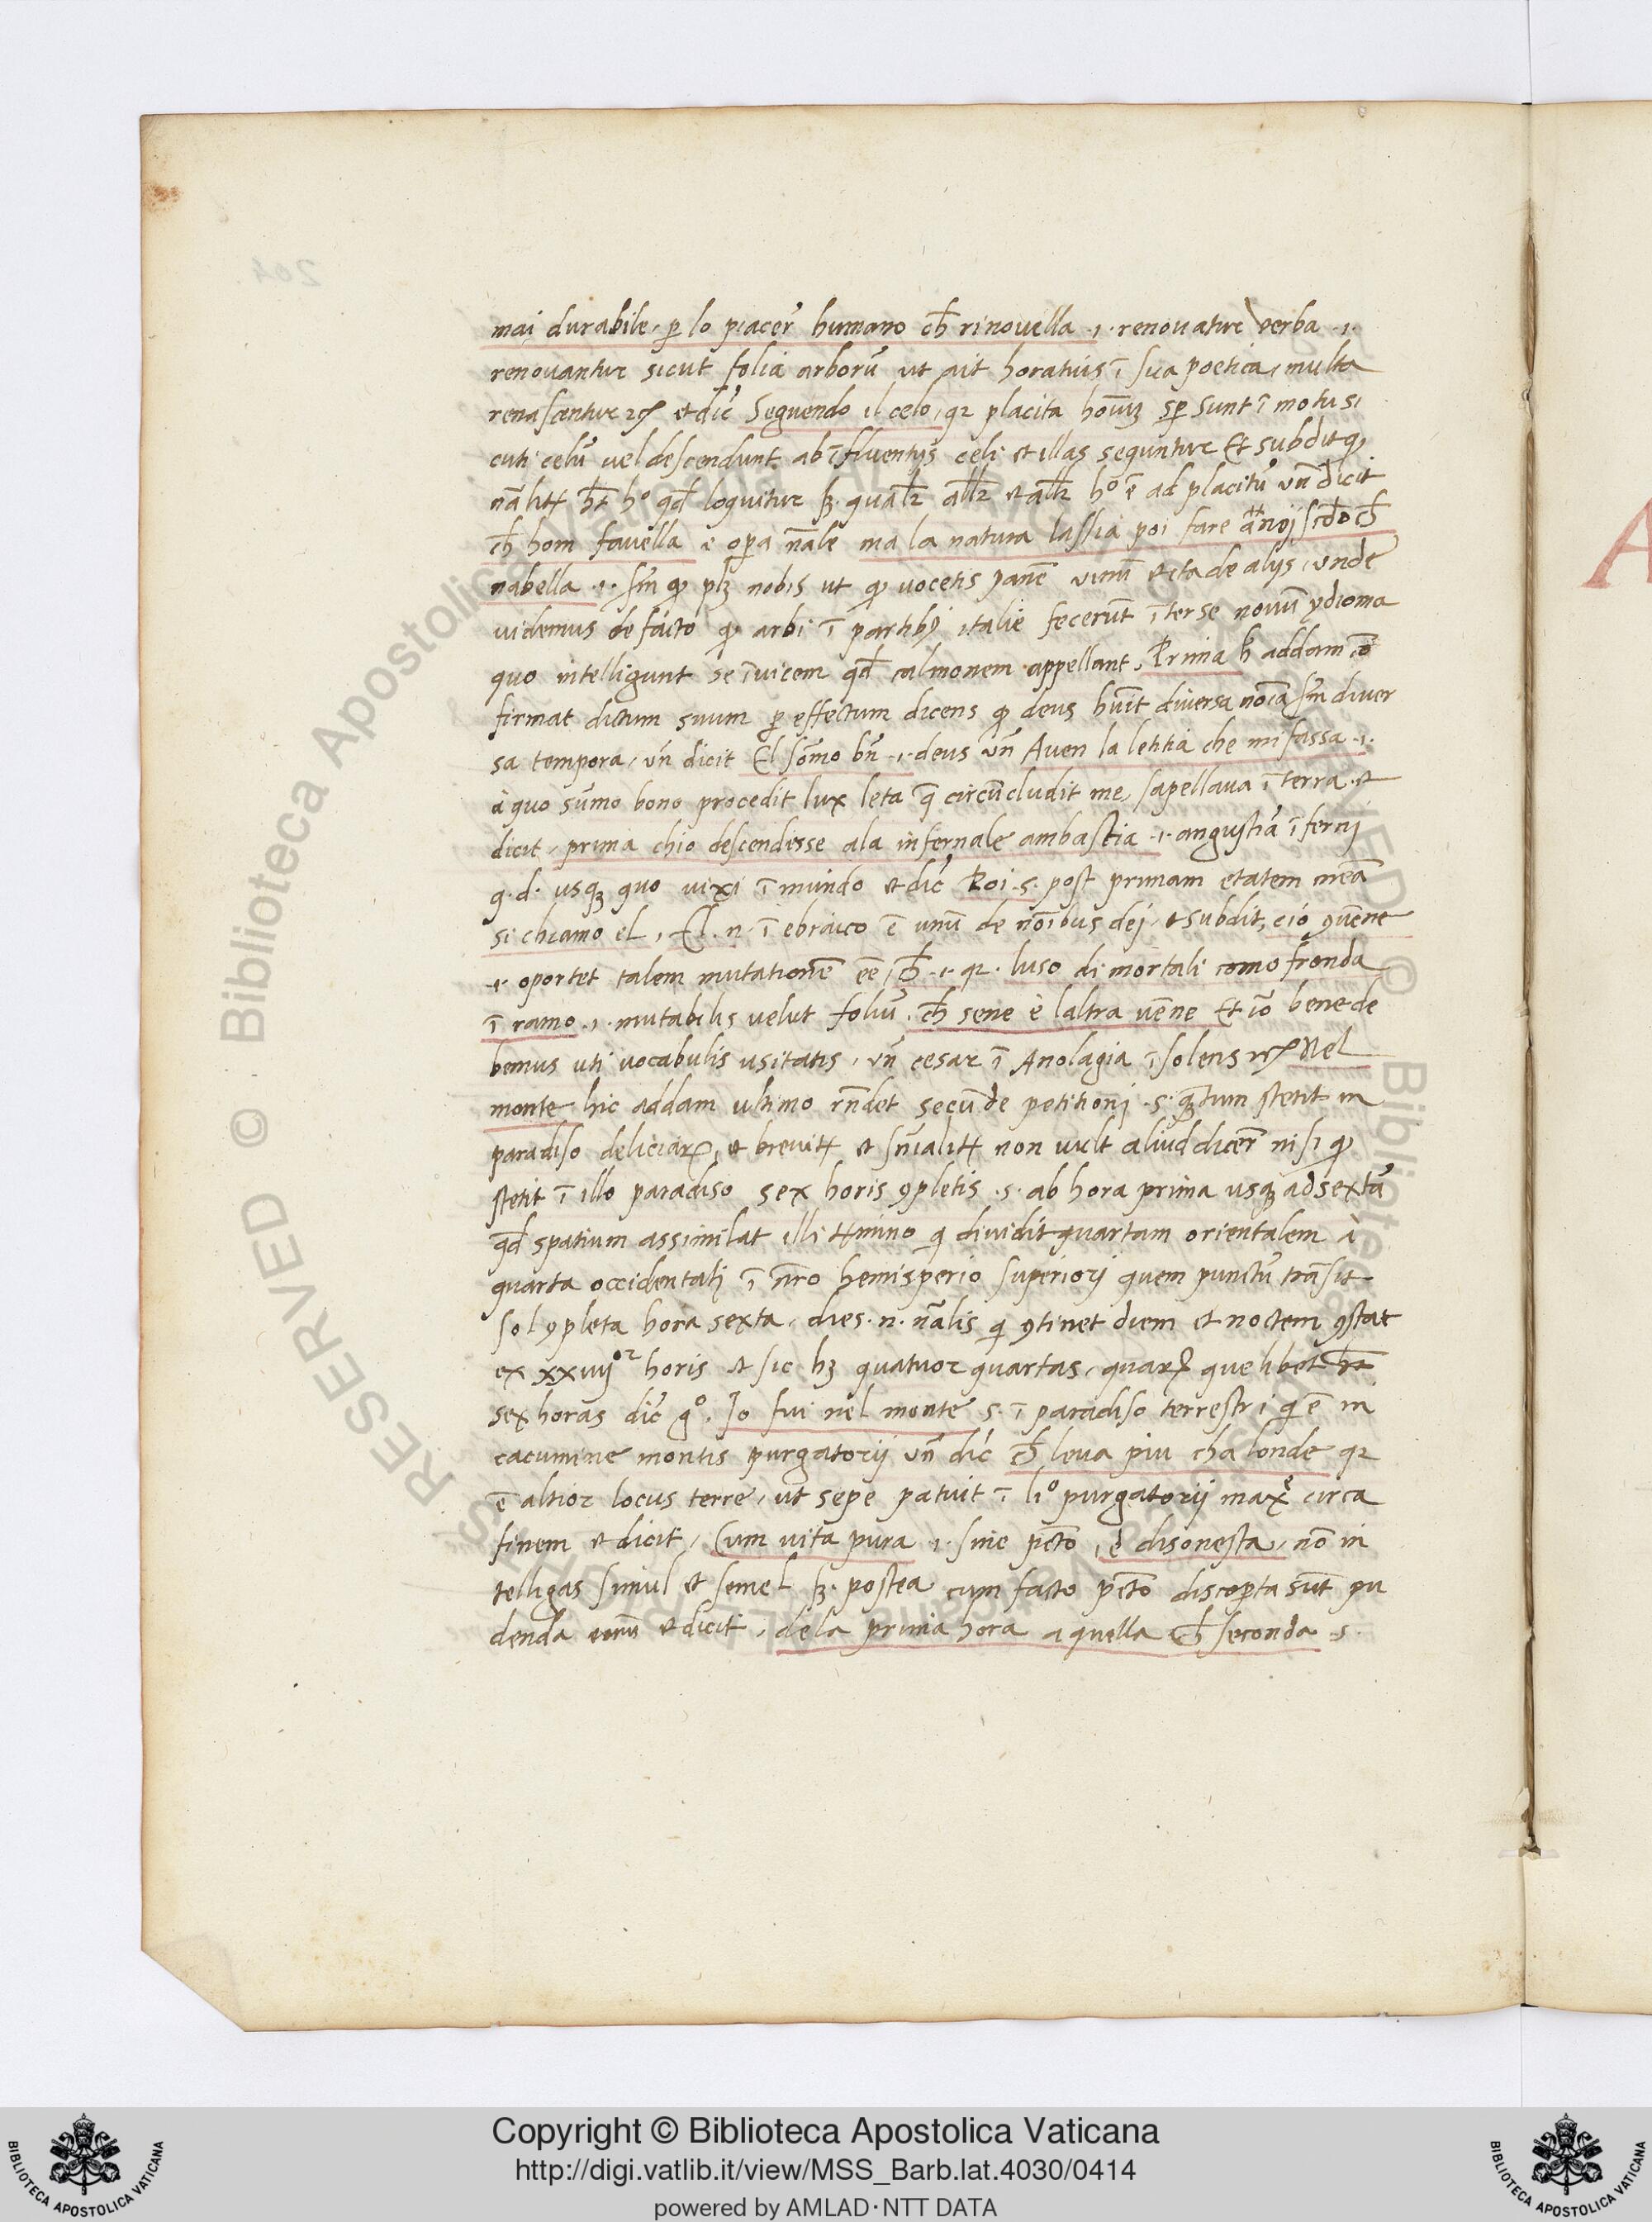 mai durabile. ꝑ lo piacer̃ humano ch̄ rinouella .i. renouatur uerba .i.
renouantur sicut folia arborũ ut ait horatius ĩ sua poetica, multa
renascentur ⁊cꝫ et dic̃ Seguendo il celo, qꝛ placita hoĩuꝫ sꝑ sunt ĩ motu si
cuti celũ uel descendunt ab ĩfluentijs celi et illas sequntur Et subdit ꝙ
nãlit̃ hꝫ hº qđ loquitur sꝫ qualr̃ alr̃ et alr̃ hº ẽ ad placitũ vñ dicit
ch̄ hom fauella e oꝑa nãle ma la natura lassia poi fare a noi scđo ch̄
nabella .i. sm̃ ꝙ plꝫ nobis ut ꝙ uocetis panẽ uinũ et ita de alijs, unde
uidemus de facto ꝙ arbi ĩ partibꝰ italie fecerũt ĩter se nouũ ydioma
quo intelligunt se ĩuicem qđ calmonem appellant. Prima h̃ addam cõ
firmat dictum suum ꝑ effectum dicens ꝙ deus hũit diuersa noĩa sm̃ diuer
sa tempora, vñ dicit El sõmo bñ .i. deus vñ Auen la letitia che mi fassa .i.
à quo sũmo bono procedit lux leta q̃ circũcludit me, sapellaua ĩ terra et
dicit, prima chio descendesse ala infernale ambastia .i. angustiã ĩferni
q.d. usqꝫ quo uixi ĩ mundo et dic̃ Poi .s. post primam etatem meã
si chiamo el, El .n. ĩ ebraico ẽ unũ de noĩbus dei, et subdit, ciò ꝯuene
.i. oportet talem mutationẽ eẽ, ch̄ .i. qꝛ. luso di mortali como fronda
ĩ ramo .i. mutabilis uelut foliũ. ch̄ sene è laltra uẽne Et iõ bene de
bemus uti vocabulis usitatis, vñ cesar ĩ Anolagia ĩsolens ⁊cꝫ Nel
monte hic addam ultimo rñdet secũde petitioni .s. qꝫtum stetit in
paradiso deliciaꝝ, et breuit̃ et sñialit̃ non uult aliud dicer̃ nisi ꝙ
stetit ĩ illo paradiso sex horis ꝯpletis .s. ab hora prima usqꝫ ad sextã
qđ spatium assimilat illi t̃mino qi diuidit quartam orientalem à
quarta occidentali ĩ nr̃o hemisperio superiori quem punctũ trãsit
sol ꝯpleta hora sexta, dies .n. nãlis qi ꝯtinet diem et noctem ꝯstat
ex xxiiijor horis et sic hꝫ quatuor quartas, quaꝝ quelibet hꝫ
sex horas dic̃ gº. Io fui nel monte .s. ĩ paradiso terrestri qi ẽ in
cacumine montis purgatorij vñ dic̃ ch̄ leua piu cha londe qꝛ
ẽ altior locus terre, ut sepe patuit ĩ liº purgatorij maxᵉ circa
finem et dicit, Cum uita pura .i. sine pc̃to, e disonesta, nõ in
telligas simul et semel sꝫ postea cum facto pc̃to discoꝑta sũt pu
denda eorũ et dicit, dela prima hora a quella ch̄ seconda .s.